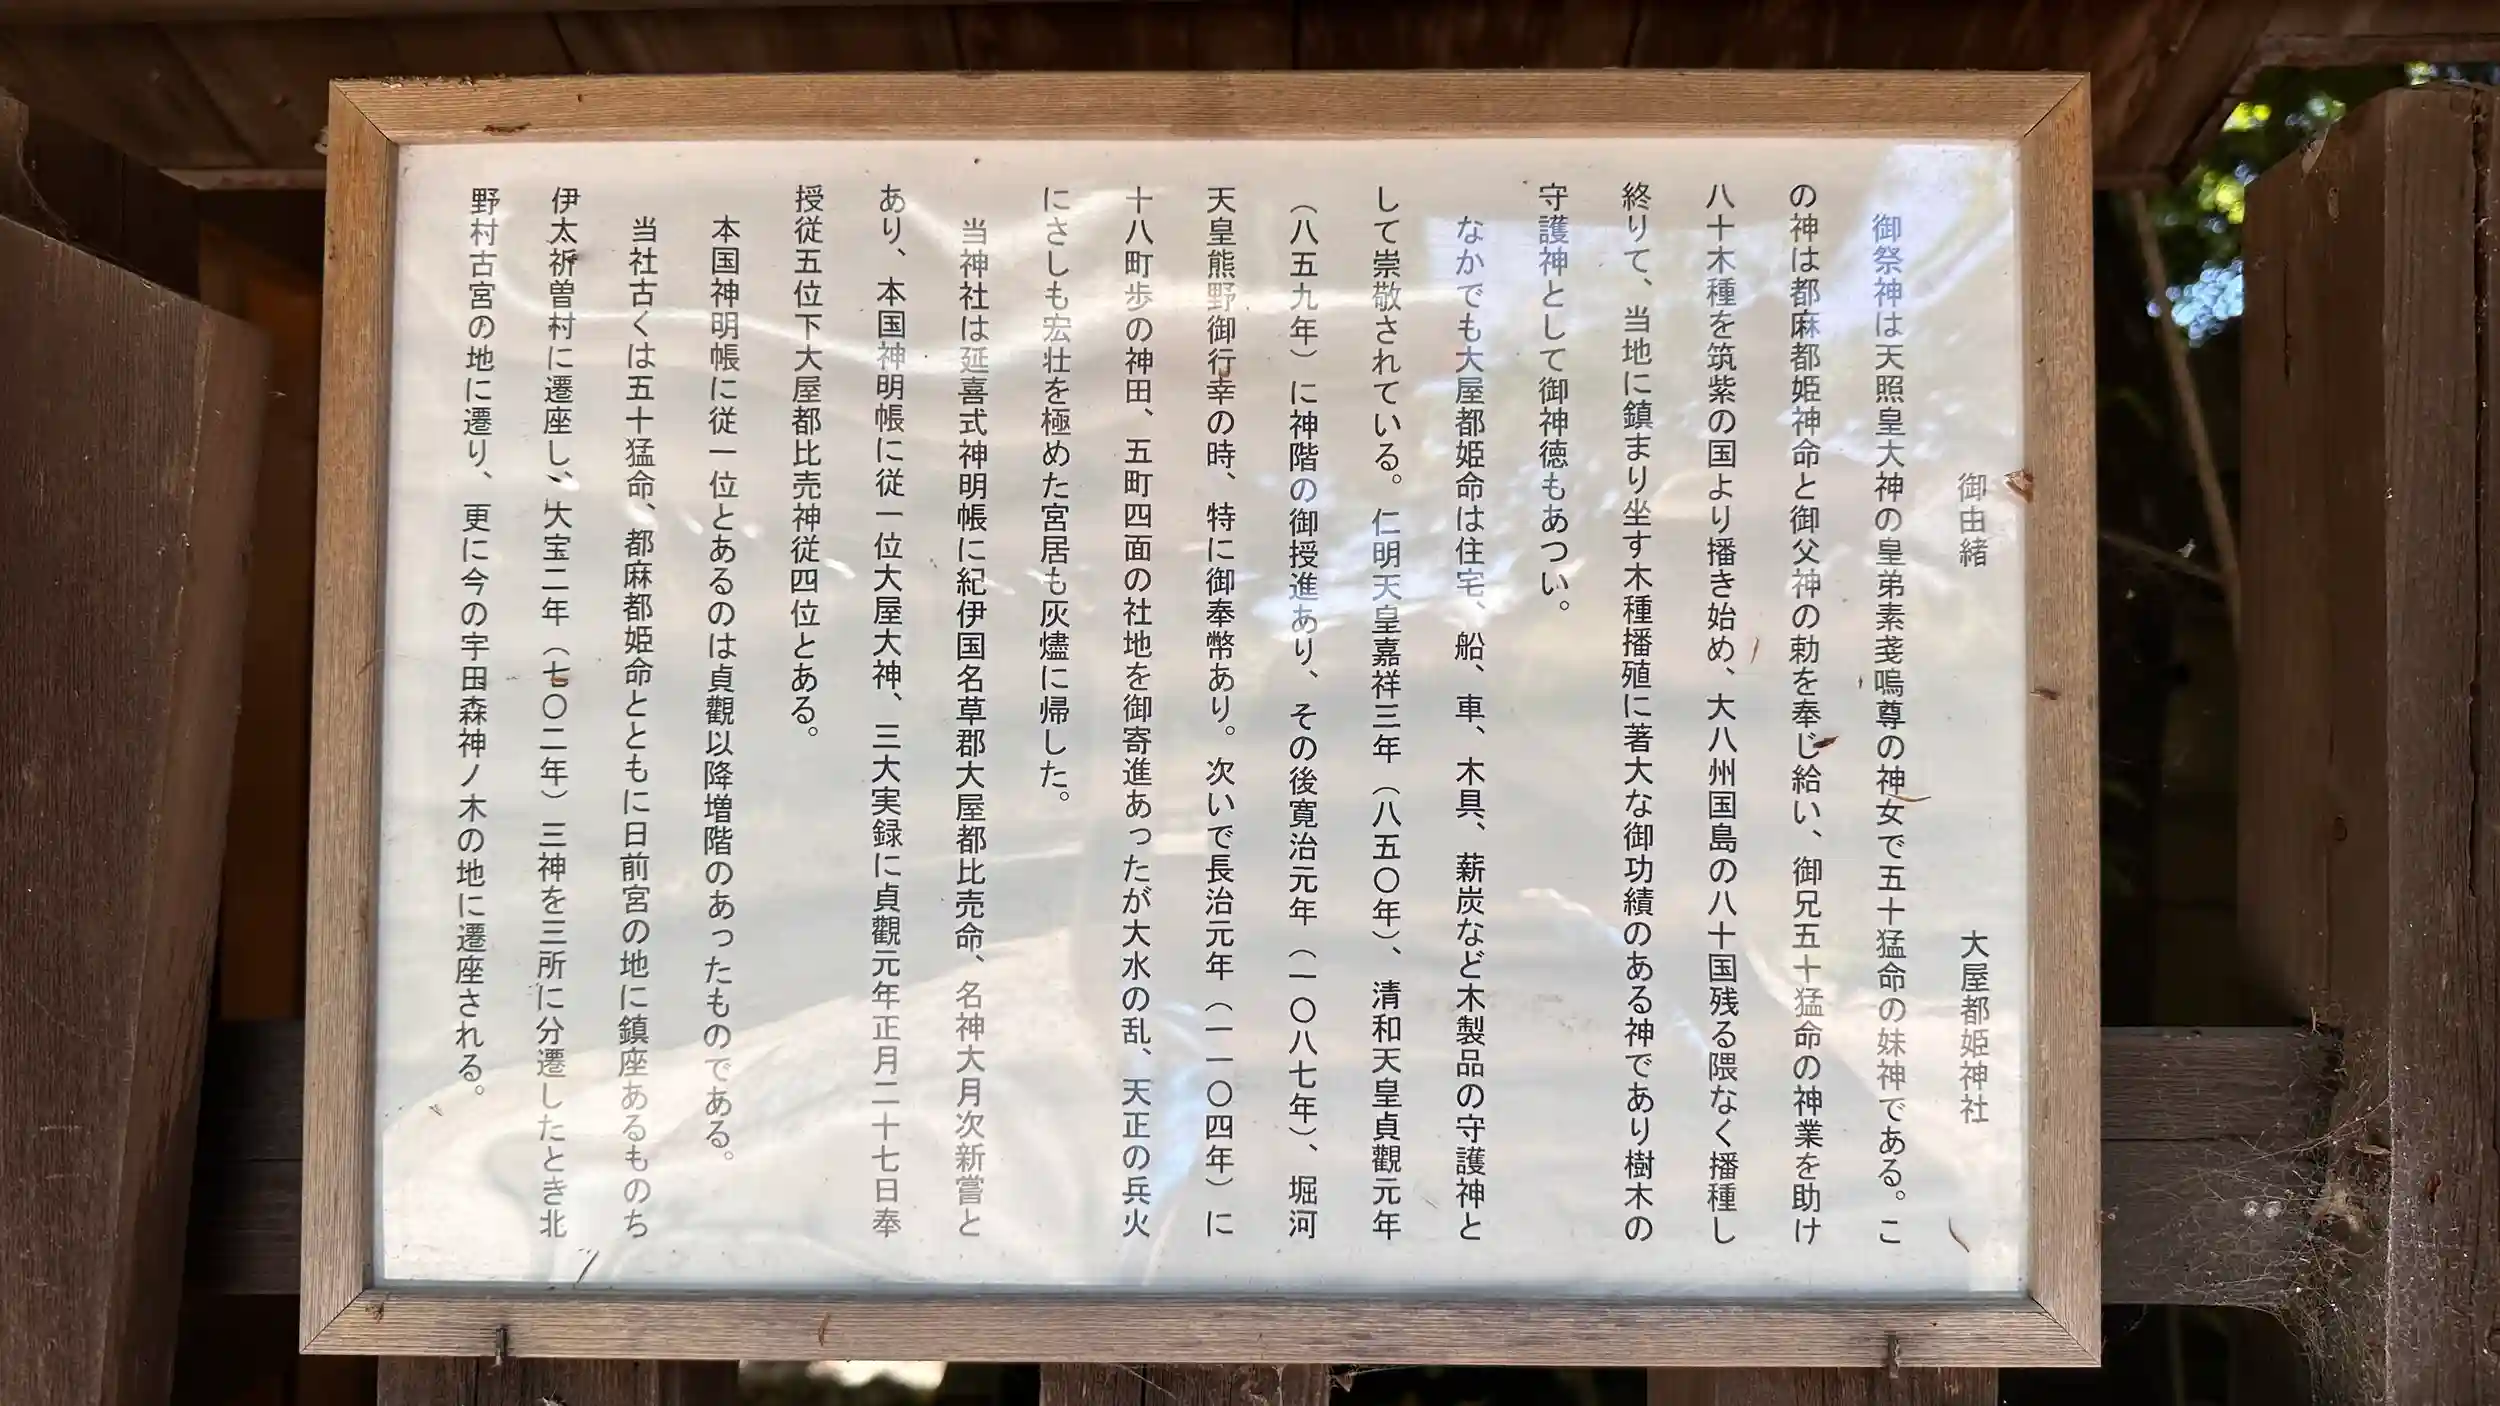 御由緒　大屋都姫神社
御祭神は天照皇大神の皇弟素戔嗚尊の神女で五十猛命の妹神である。こ
の神は都麻都姫神命と御父神の勅を奉じ給い、御兄五十猛命の神業を助け
八十木種を筑紫の国より播き始め、大八州国島の八十国残る隈なく播種し
終りて、当地に鎮まり坐す木種播殖に著大な御功績のある神であり樹木の
守護神として御神徳もあつい。
なかでも大屋都姫命は住宅、船、車、木具、薪炭など木製品の守護神と
して崇敬されている。仁明天皇嘉祥三年（八五〇年）、清和天皇貞觀元年
（八五九年）に神階の御授進あり、その後寛治元年（一〇八七年）、堀河
天皇熊野御行幸の時、特に御奉幣あり。次いで長治元年（一一〇四年）に
十八町歩の神田、五町四面の社地を御寄進あったが大水の乱、天正の兵火
にさしも宏壮を極めた宮居も灰燼に帰した。
当神社は延喜式神明帳に紀伊国名草郡大屋都比売命、名神大月次新嘗と
あり、本国神明帳に従一位大屋大神、三大実録に貞觀元年正月二十七日奉
授従五位下大屋都比売神従四位とある。
本国神明帳に従一位とあるのは貞觀以降増階のあったものである。
当社古くは五十猛命、都麻都姫命とともに日前宮の地に鎮座あるものち
伊太祈曽村に遷座し、大宝二年（七〇二年）三神を三所に分遷したとき北
野村古宮の地に遷り、更に今の宇田森神ノ木の地に遷座される。